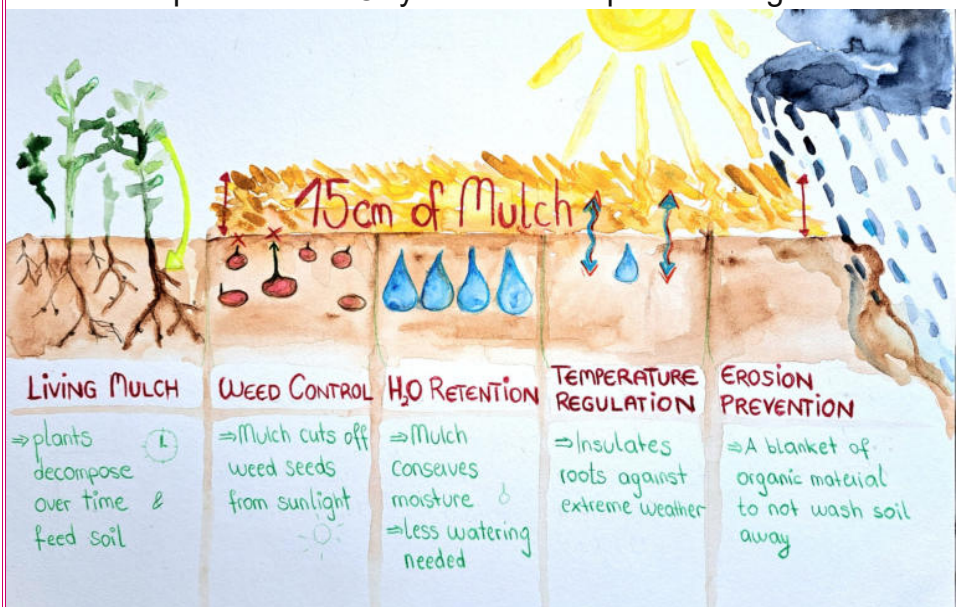 15cm of Mulch
LIVING MULCH
⇒plants
decompose
over time &
feed soil
WEED CONTROL
⇒Mulch cuts off
weed seeds
from sunlight
H₂O RETENTION
⇒Mulch
conserves
moisture
⇒Less watering
needed
TEMPERATURE
REGULATION
⇒Insulates
roots against
extreme weather
EROSION
PREVENTION
⇒A blanket of
organic material
to not wash soil
away